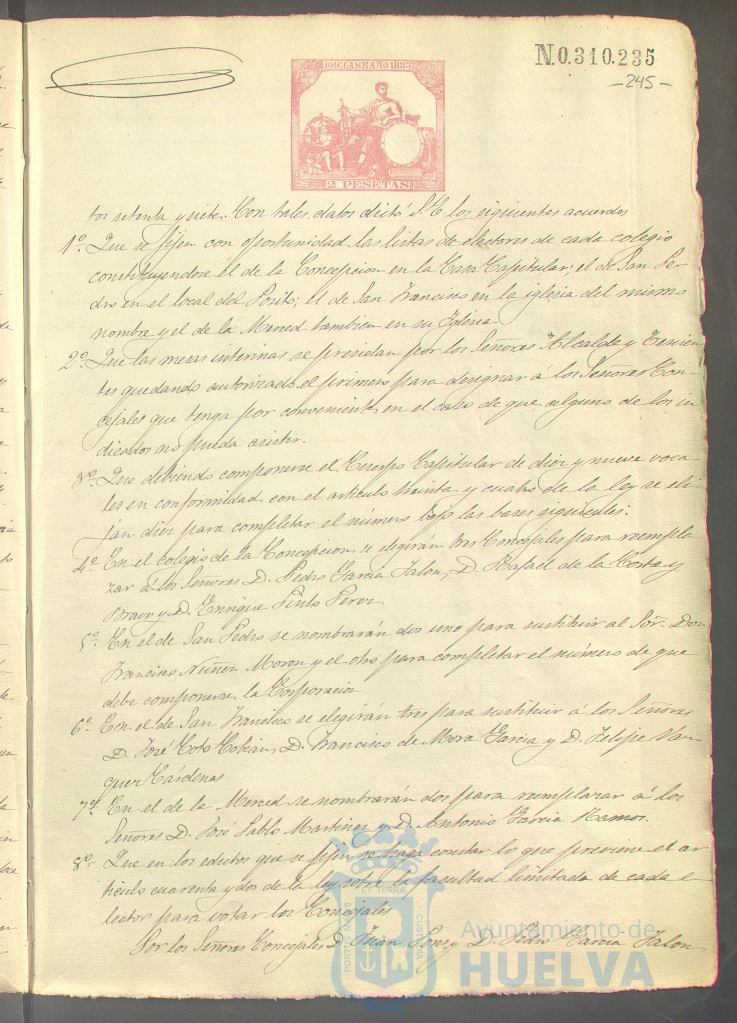 N.0.310.235
-245-
10ª CLASE AÑO 1883
2 PESETAS
tos setenta y siete. Con tales datos dictó S.E. los siguientes acuerdos
1º. Que se fijen con oportunidad las listas de electores de cada colegio
constituyendose el de la Concepcion en la Casa Capitular; el de San Pe-
dro en el local del Posito; el de San Francisco en la iglesia del mismo
nombre y el de la Merced tambien en su Iglesia
2º. Que las mesas interinas se presidan por los Señores Alcalde y Tenien-
tes quedando autorizado el primero para designar á los Señores Con-
cejales que tenga por conveniente en el caso de que alguno de los in-
dicados no pueda asistir.
3º. Que debiendo componerse el Cuerpo Capitular de diez y nueve voca-
les en conformidad con el articulo treinta y cuatro de la ley se eli-
jan diez para completar el número bajo las bases siguientes:
4º. En el colegio de la Concepcion se elegirán tres Concejales para reempla-
zar á los Señores D. Pedro Garcia Jalon, D. Rafael de la Corte y
Bravo y D. Enrique Pinto Perez
5º. En el de San Pedro se nombrarán dos uno para sustituir al Sor. Don
Francisco Nuñez Moron y el otro para completar el número de que
debe componerse la Corporacion
6º. En el de San Francisco se elegirán tres para sustituir á los Señores
D. José Coto Cobian, D. Francisco de Mora Garcia y D. Felipe Vaz-
quez Cárdenas
7º. En el de la Merced se nombrarán dos para reemplazar á los
Señores D. José Pablo Martinez y D. Antonio Garcia Ramos.
8º. Que en los edictos que se fijen se haga constar lo que previene el ar-
ticulo cuarenta y dos de la ley sobre la facultad limitada de cada e-
lector para votar los Concejales
Por los Señores Concejales D. Juan y D. Pedro Garcia Jalon
PORTUS MARIS ET TERRÆ CUSTODIA
Ayuntamiento de
HUELVA